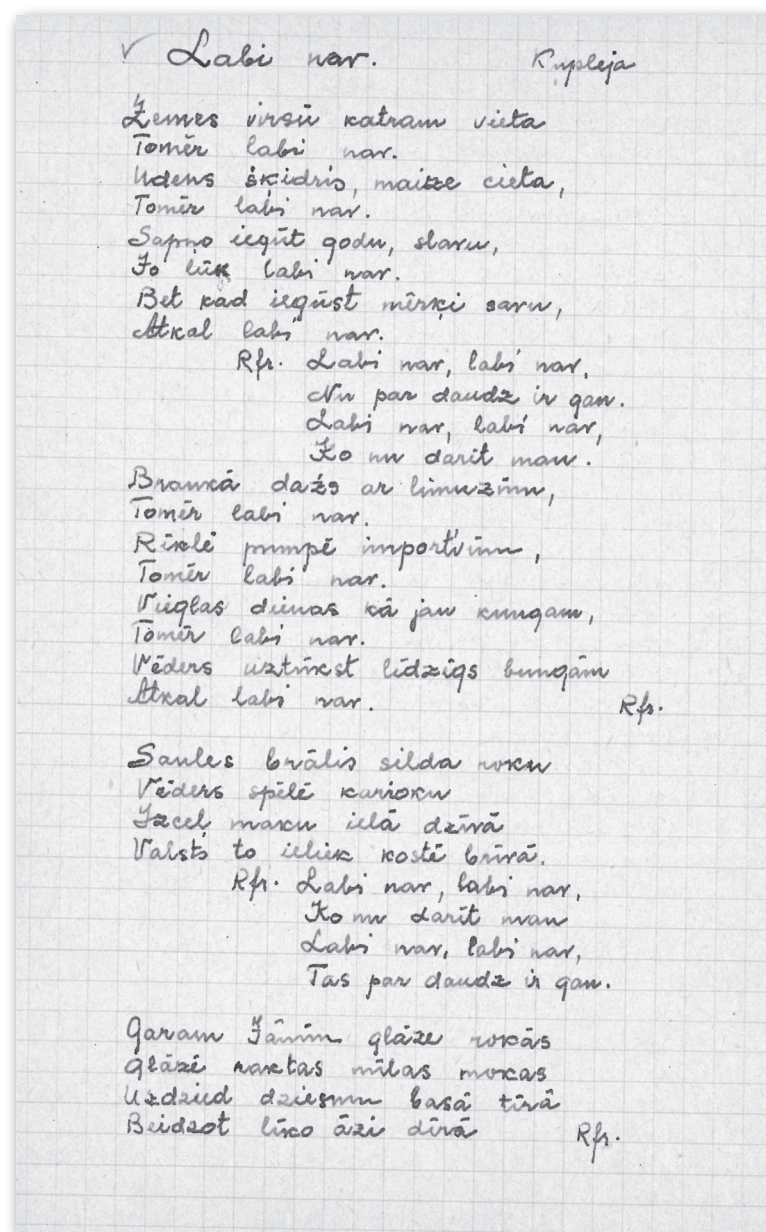 ✓ Labi nav. Kupleja
Zemes virsū katram vieta
Tomēr labi nav.
Udens šķidris, maize cieta,
Tomēr labi nav.
Sapņo iegūt godu, slavu,
Jo lūk labi nav.
Bet kad iegūst mērķi savu,
Atkal labi nav.
Rfr. Labi nav, labi nav,
Nu par daudz ir gan.
Labi nav, labi nav,
Ko nu darīt man.
Braukā dažs ar limuzīnu,
Tomēr labi nav.
Rīklē pumpē importvīnu,
Tomēr labi nav.
Vieglas dienas kā jau kungam,
Tomēr labi nav.
Vēders uztūkst līdzīgs bungām
Atkal labi nav. Rfr.
Saules brālis silda roku
Vēders spēlē karioku
Izceļ maku ielā dzīvā
Valsts to ieliek kostē brīvā.
Rfr. Labi nav, labi nav,
Ko nu darīt man
Labi nav, labi nav,
Tas par daudz ir gan.
Garam Jānim glāze rokās
Glāzē raktas mīlas mokas
Uzdzied dziesmu basā tīrā
Beidzot līko āzi dīrā Rfr.